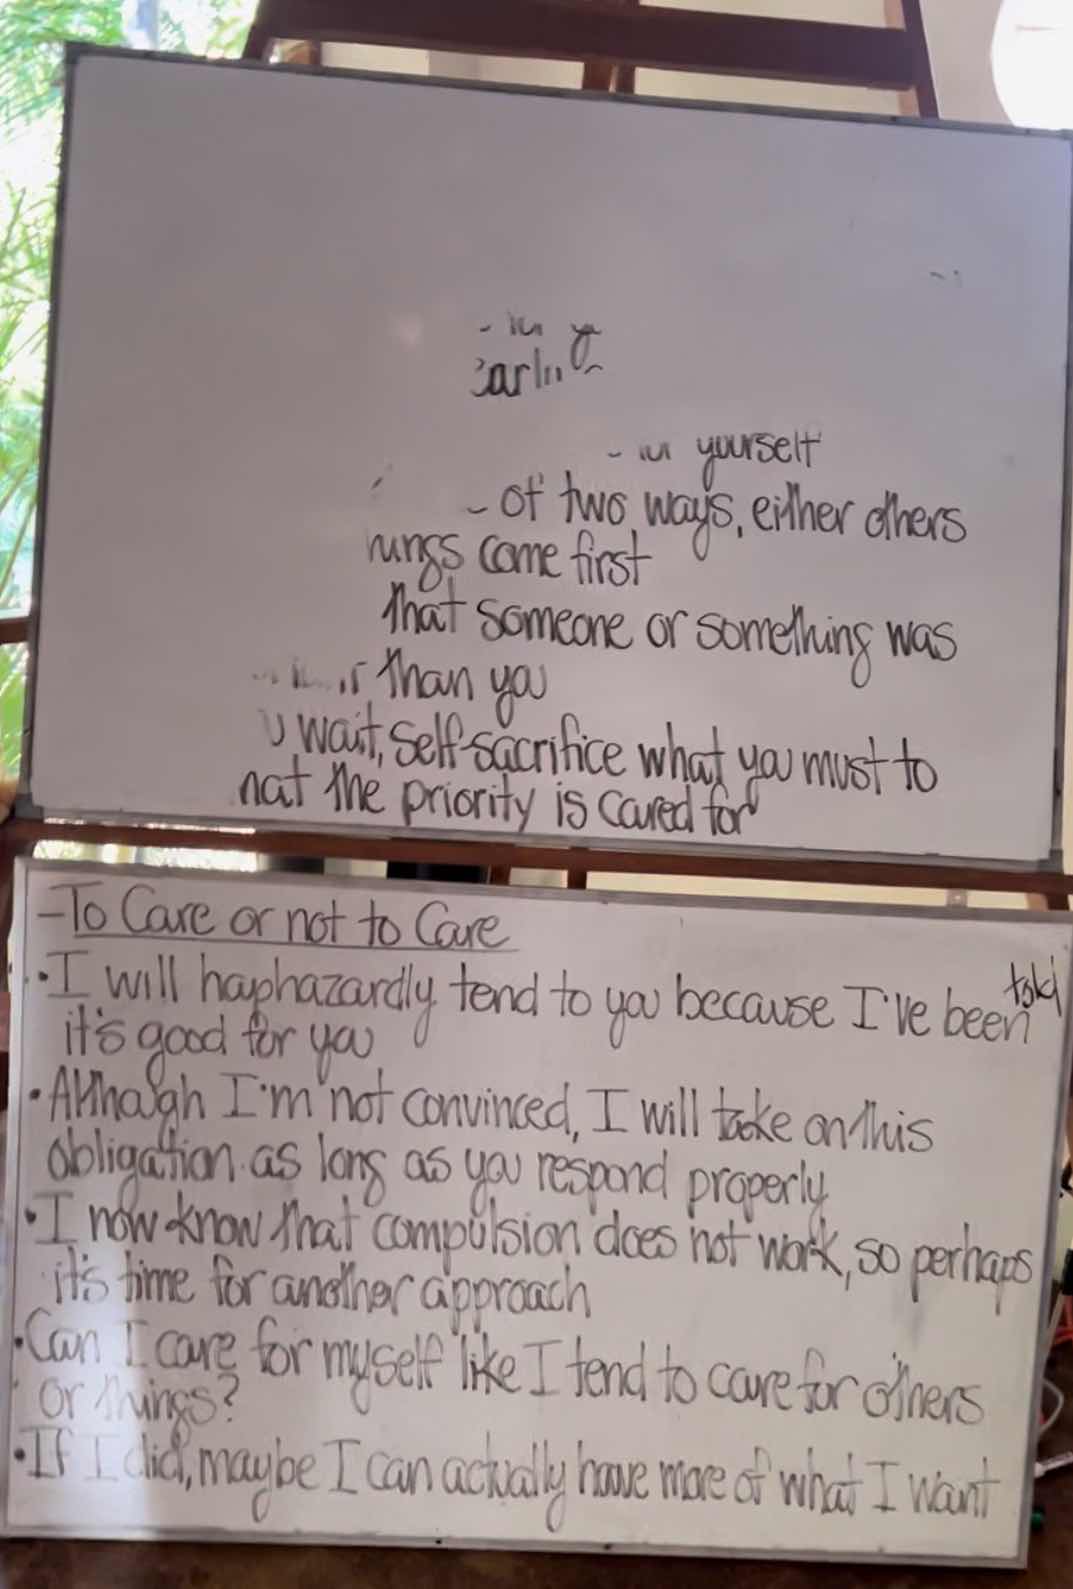 yourself
of two ways, either others
come first
that someone or something was
than you
wait, self-sacrifice what you must to
the priority is cared for
- To Care or not to Care
• I will haphazardly tend to you because I've been told
it's good for you
• Although I'm not convinced, I will take on this
obligation as long as you respond properly
• I now know that compulsion does not work, so perhaps
it's time for another approach
• Can I care for myself like I tend to care for others
or things?
• If I did, maybe I can actually have more of what I want